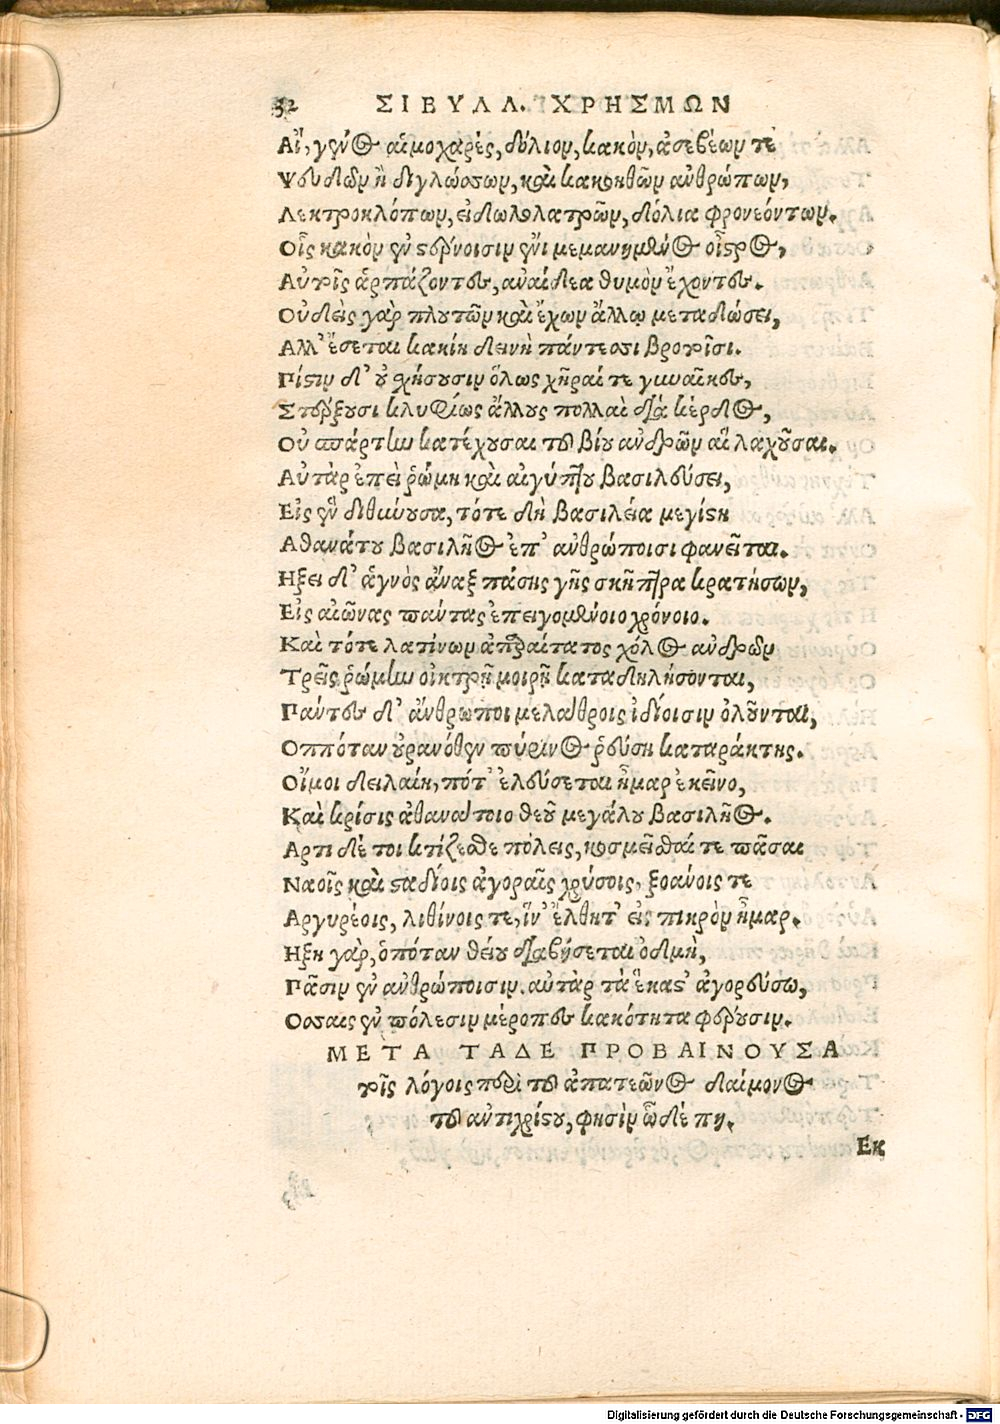 52 ΣΙΒΥΛΛ. ΧΡΗΣΜΩΝ
Αἴ, γένος αἱμοχαρές, δόλιον, κακὸν, ἀσεβέων τε
Ψευδῶν ἢ διγλώσσων, καὶ κακοηθῶν ἀνθρώπων,
Λεκτροκλόπων, εἰδωλολατρῶν, δόλια φρονεόντων.
Οἷς κακὸν ἐν στέρνοισιν ἔνι μεμανημένος οἶστρος,
Αὐτοῖς ἁρπάζοντες, ἀναίδεα θυμὸν ἔχοντες.
Οὐδεὶς γὰρ πλουτῶν καὶ ἔχων ἄλλῳ μεταδώσει,
Αλλ' ἔσεται κακίη δεινὴ πάντεσσι βροτοῖσι.
Πίστιν δ' οὐ χήσουσιν ὅλως χῆραί τε γυναῖκες,
Στέρξουσι κρυφίως ἄλλους πολλαὶ διὰ κέρδος,
Οὐ σπάρτην κατέχουσαι τοῦ βίου ἀνδρῶν αἱ λαχοῦσαι.
Αὐτὰρ ἐπεὶ ῥώμη καὶ αἰγύπτου βασιλεύσει,
Εἰς ἓν διθύνουσα, τότε δὴ βασιλεία μεγίστη
Αθανάτου βασιλῆος ἐπ' ἀνθρώποισι φανεῖται.
Ηξει δ' ἁγνὸς ἄναξ πάσης γῆς σκῆπτρα κρατήσων,
Εἰς αἰῶνας πάντας ἐπειγομένοιο χρόνοιο.
Καὶ τότε λατίνων ἀπαραίτατος χόλος ἀνδρῶν
Τρεῖς ῥώμην οἰκτρῇ μοίρῃ καταδηλήσονται,
Πάντες δ' ἄνθρωποι μελάθροις ἰδίοισιν ὀλοῦνται,
Οππόταν οὐρανόθεν πύρινος ῥεύσῃ καταράκτης.
Οἴμοι δειλαίη, πότ' ἐλεύσεται ἦμαρ ἐκεῖνο,
Καὶ κρίσις ἀθανάτοιο θεοῦ μεγάλου βασιλῆος.
Αρτι δέ τοι κτίζεσθε πόλεις, κοσμεῖσθαί τε πᾶσαι
Ναοῖς καὶ σταδίοις ἀγοραῖς χρύσοις, ξοάνοις τε
Αργυρέοις, λιθίνοις τε, ἵν' ἔλθητ' εἰς πικρὸν ἦμαρ.
Ηξη γὰρ, ὁπόταν θείου διαβήσεται ὀδμὴ,
Πᾶσιν ἐν ἀνθρώποισιν. αὐτὰρ τὰ ἕκαστ' ἀγορεύσω,
Οσσαις ἐν πόλεσιν μέροπες κακότητα φέρουσιν.
ΜΕΤΑ ΤΑΔΕ ΠΡΟΒΑΙΝΟΥΣΑ
τοῖς λόγοις περὶ τοῦ ἀπατεῶνος δαίμονος
τοῦ ἀντιχρίστου, φησὶν ὧδέ πη.
Εκ
Digitalisierung gefördert durch die Deutsche Forschungsgemeinschaft - DFG